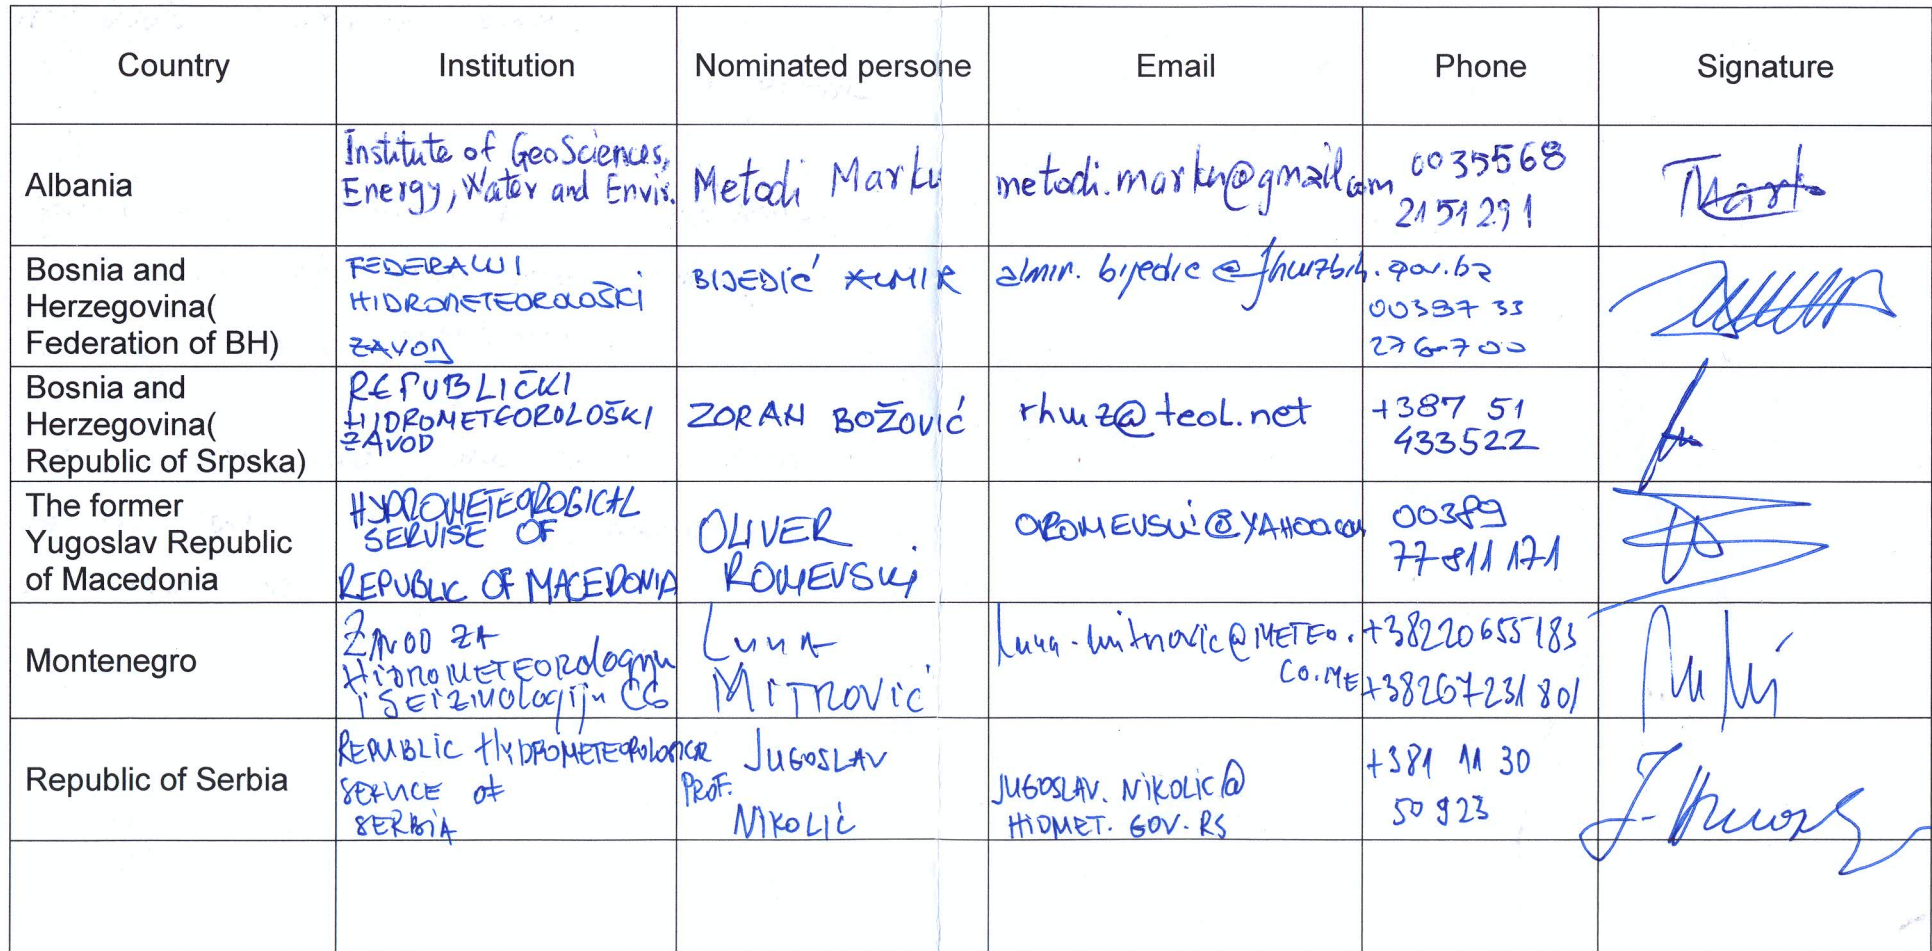 Country Institution Nominated persone Email Phone Signature
Albania
Institute of GeoSciences,
Energy, Water and Envir.
Metodi Marku
metodi.marku@gmail.com
0035568
2151291
Bosnia and
Herzegovina(
Federation of BH)
FEDERALNI
HIDROMETEOROLOŠKI
ZAVOD
BIJEDIĆ ALMIR
almir.bijedic@fhmzbih.gov.ba
00387 33
276-700
Bosnia and
Herzegovina(
Republic of Srpska)
REPUBLIČKI
HIDROMETEOROLOŠKI
ZAVOD
ZORAN BOŽOVIĆ
rhmz@teol.net
+387 51
433522
The former
Yugoslav Republic
of Macedonia
HYDROMETEOROGICAL
SERVISE OF
REPUBLIC OF MACEDONIA
OLIVER
ROMEVSKI
OROMEVSKI@YAHOO.com
00389
77 811 171
Montenegro
ZAVOD ZA
HIDROMETEOROLOGIJU
I SEIZMOLOGIJU CG
Luna
MITROVIĆ
luna.mitrovic@METEO.
CO.ME
+38220655183
+38267231801
Republic of Serbia
REPUBLIC HYDROMETEOROLOGICAL
SERVICE OF
SERBIA
JUGOSLAV
PROF.
NIKOLIĆ
JUGOSLAV.NIKOLIC@
HIDMET.GOV.RS
+381 11 30
50 923